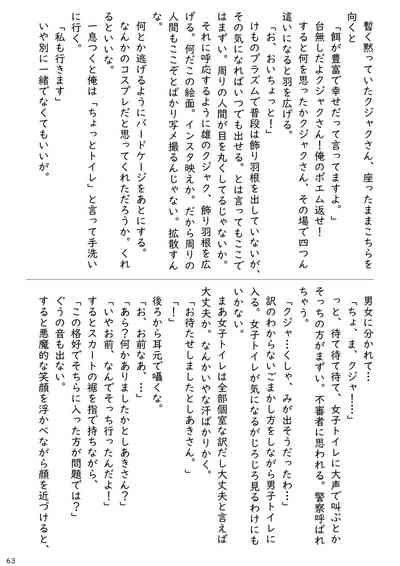 暫く黙っていたクジャクさん、座ったままこちらを
向くと
「餌が豊富で幸せだって言ってますよ。」
台無しだよクジャクさん！俺のポエム返せ！
すると何を思ったかクジャクさん、その場で四つん
這いになると羽を広げる。
「お、おいちょっと！」
けものプラズムで普段は飾り羽根を出していないが、
その気になればいつでも出せる。とは言ってもここで
はまずい。周りの人間が目を丸くしてるじゃないか。
それに呼応するように雄のクジャク、飾り羽根を広
げる。何だこの絵面。インスタ映えか。だから周りの
人間もここぞとばかり写メ撮るんじゃない。拡散すん
な。
何とか逃げるようにバードケージをあとにする。
なんかのコスプレだと思ってくれただろうか。くれ
るといいな。
一息つくと俺は「ちょっとトイレ」と言って手洗い
に行く。
「私も行きます」
いや別に一緒でなくてもいいが。
男女に分かれて…
「ちょ、ま、クジャ！…」
っと、待て待て待て、女子トイレに大声で叫ぶとか
そっちの方がまずい。不審者に思われる。警察呼ばれ
ちゃう。
「クジャ…くしゃ、みが出そうだったわ…」
訳のわからないごまかし方をしながら男子トイレに
入る。女子トイレが気になるがじろじろ見るわけにも
いかない。
まあ女子トイレは全部個室な訳だし大丈夫と言えば
大丈夫か。なんかいやな汗ばかりかく。
「お待たせしましたとしあきさん。」
「！」
後ろから耳元で囁くな。
「お、お前なあ、…」
「あら？何かありましたかとしあきさん？」
「いやお前、なんでそっち行ったんだよ！」
するとスカートの裾を指で持ちながら、
「この格好でそちらに入った方が問題では？」
ぐうの音も出ない。
すると悪魔的な笑顔を浮かべながら顔を近づけると、
63